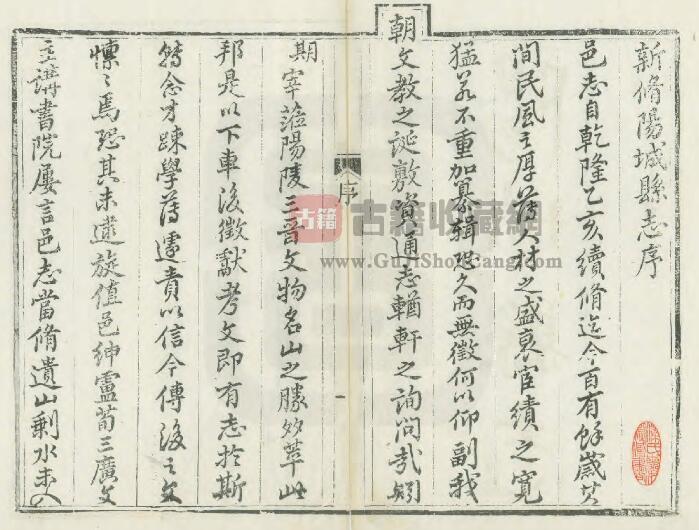 新脩陽城縣志序
邑志自乾隆乙亥續脩迄今百有餘歲其
間民風之厚薄人材之盛衰宦績之寛
猛若不重加纂輯恐久而無徵何以仰副我
朝文教之誕敷資通志輶軒之詢問哉
期宰蒞陽陵三晋文物名山之勝效萃此
邦是以下車後徵獻考文即有志於斯
轉念才踈學薄遽責以信今傳後之文
懍〻焉恐其未逮旋值邑紳盧荀三廣文
主講書院屢言邑志當脩遺山剩水未入
序
一
古籍
古籍收藏網
www.GuJiShoCang.com